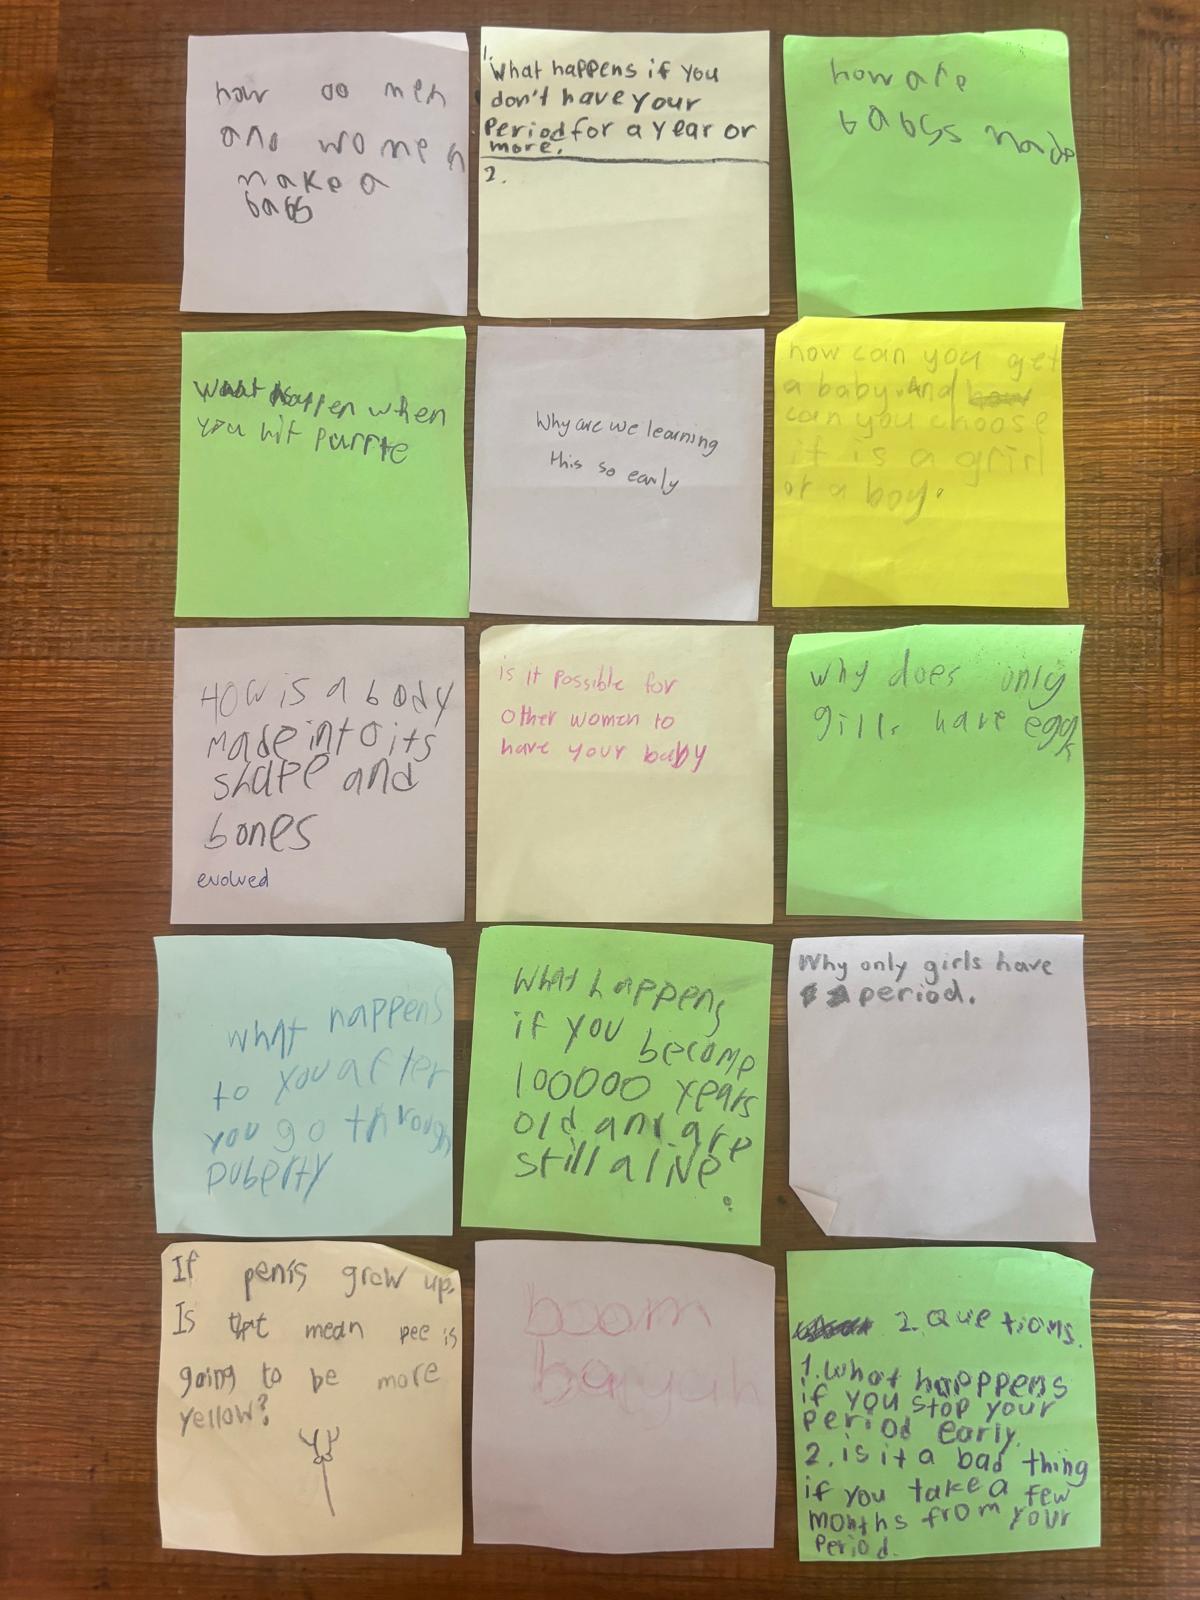 how do men
and women
make a
baby
1.
What happens if you
don't have your
Period for a year or
more.
2.
how are
babys made
What happen when
you hit purrte
Why are we learning
this so early
how can you get
a baby. And
can you choose
it is a grirl
or a boy.
How is a body
made into its
shape and
bones
evolved
is it possible for
other women to
have your baby
why does only
gills have eggs
what happens
to you after
you go through
puberty
What happens
if you become
100000 years
old and are
still alive.
Why only girls have
period.
If penis grow up.
Is that mean pee is
going to be more
yellow?
boom
bayyah
2 Quetioms.
1. What happpens
if you stop your
period early.
2. is it a bad thing
if you take a few
months from your
Period.